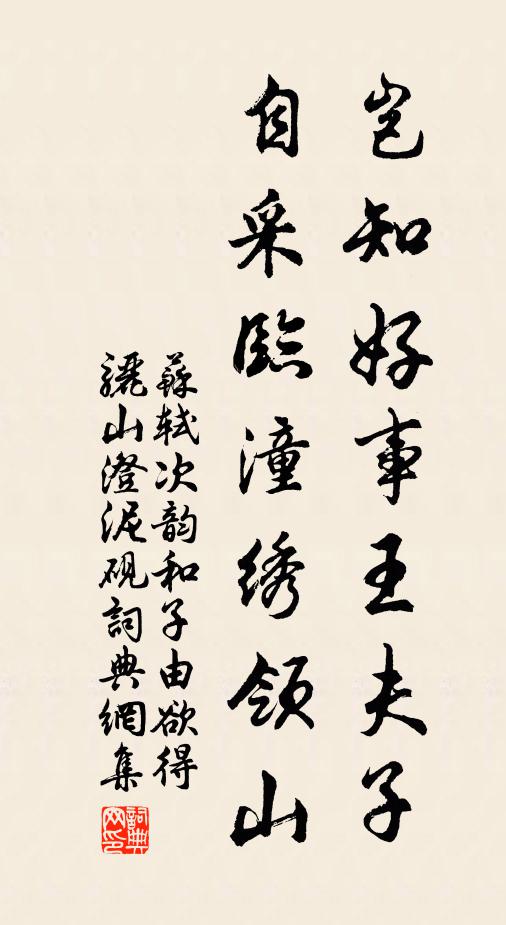 岂知好事王夫子
自采臨潼绣领山
蘇轼次韵和子由欲得
驪山澄泥砚詞典網集
詞典网印